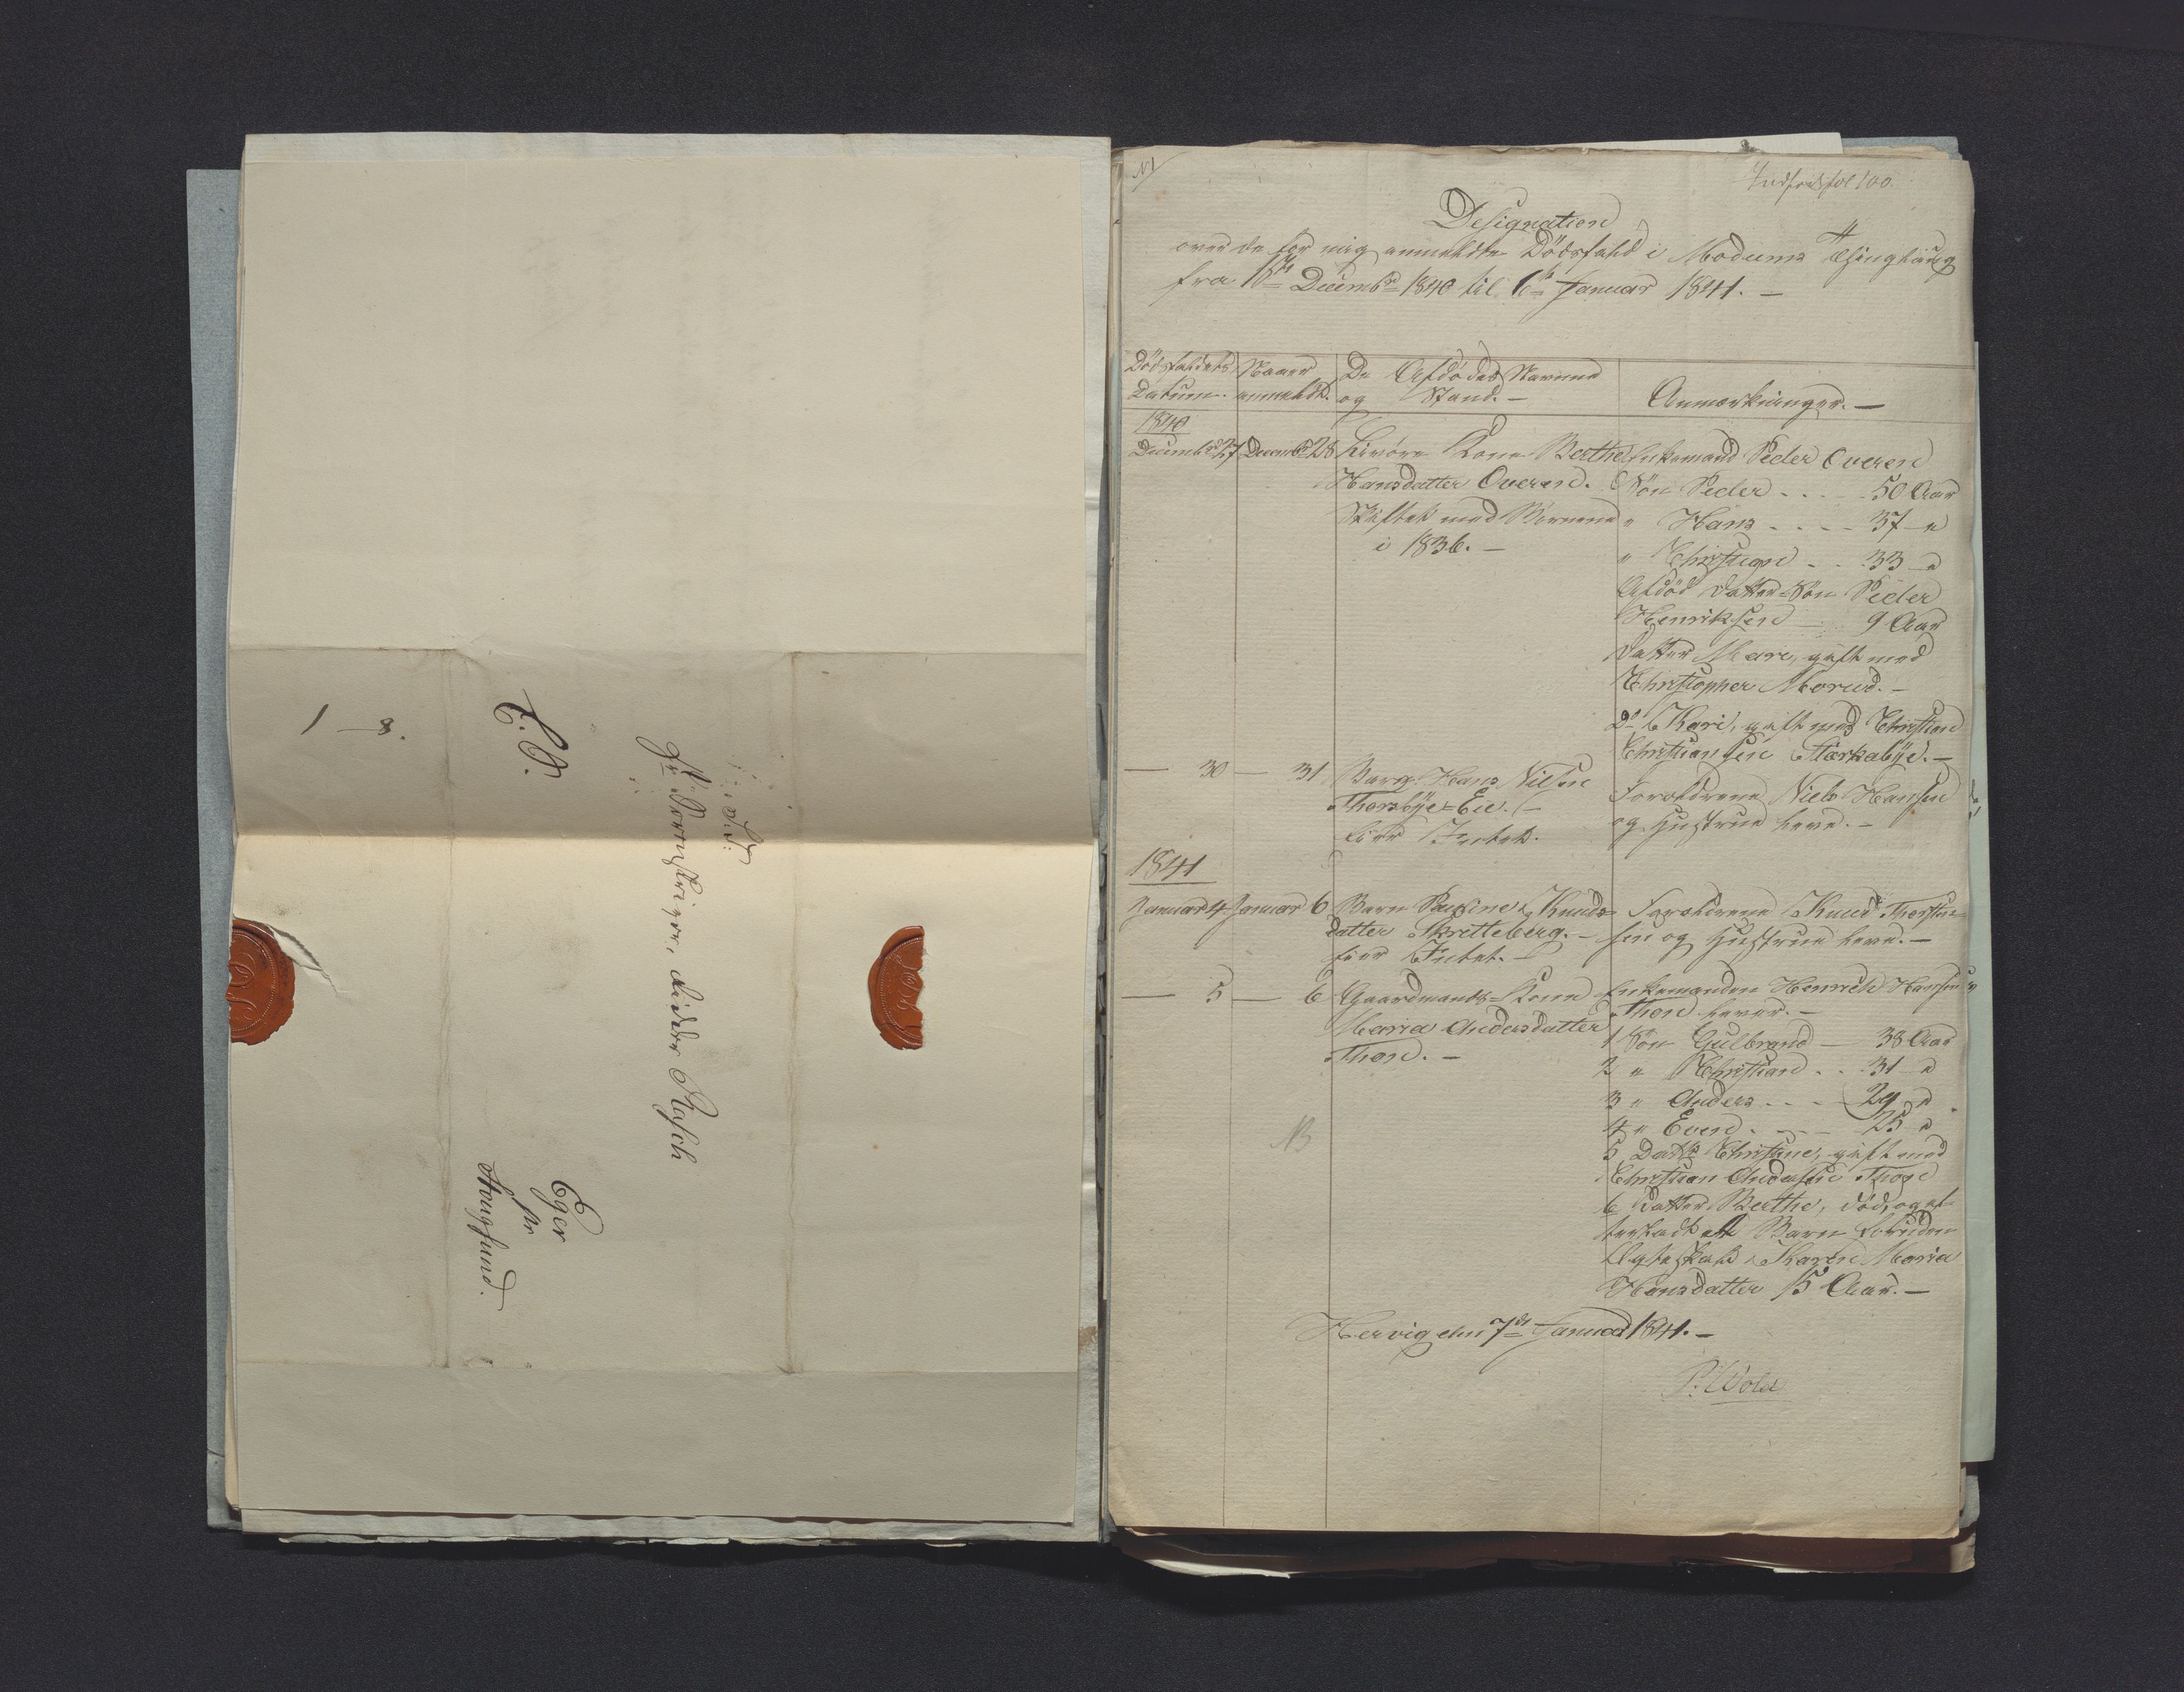 1 – 8.
E. O.
S. T.
Hr Sorenskriver, Ridder Rasch
Eger
pr
Hougsund.
N 1
Indført fol 100.
Designation
over de for mig anmeldte Dödsfald i Modums Thinglaug
fra 16de Decembr 1840 til 6te Januar 1841. –
Dödsfaldets Datum.
Naar anmeldt.
De Afdödes Navne og Stand. –
Anmærkninger. –
1840
Decembr 27 Decembr 28
Kone Berthe
Hansdatter Overen.
Skiftet med Börnene
i 1836. –
Enkemand Peder Overen
Sön Peder . . . . 50 Aar
" Hans . . . . 37 "
" Christian . . 33 "
Afdöd Datters Sön Peder
Henriksen – 9 Aar
Datter Mari, gift med
Christopher Morud. –
Do Kari, gift med Christian
Christiansen Stærkabye. –
— 30 — 31
Barn Hans Nilsen
Thorsbye-Eie. –
Eier Intet.
Forældrene Niels Hansen
og Hustrue leve. –
1841
Januar 4 Januar 6
Barn Pauline Knuds-
datter Skretteberg. –
Eier Intet. –
Forældrene Knud Thorsten-
sen og Hustrue leve. –
— 5 — 6
Gaardmands-Kone
Maria Andersdatter
Thon. –
Enkemanden Henrich Hansen
Thon lever. –
1 Sön Gulbrand – 38 Aar
2 " Christian . . 31 "
3 " Anders . . . 29 "
4 " Even . . . . 25 "
5 Datter Christine, gift med
Christian Andersen Thon
6 Datter Berthe, död, og ef-
terladt et Barn foruden
Ægteskab, Karen Maria
Hansdatter 15 Aar. –
NB
Hervig den 7de Januar 1841. –
P. Wold